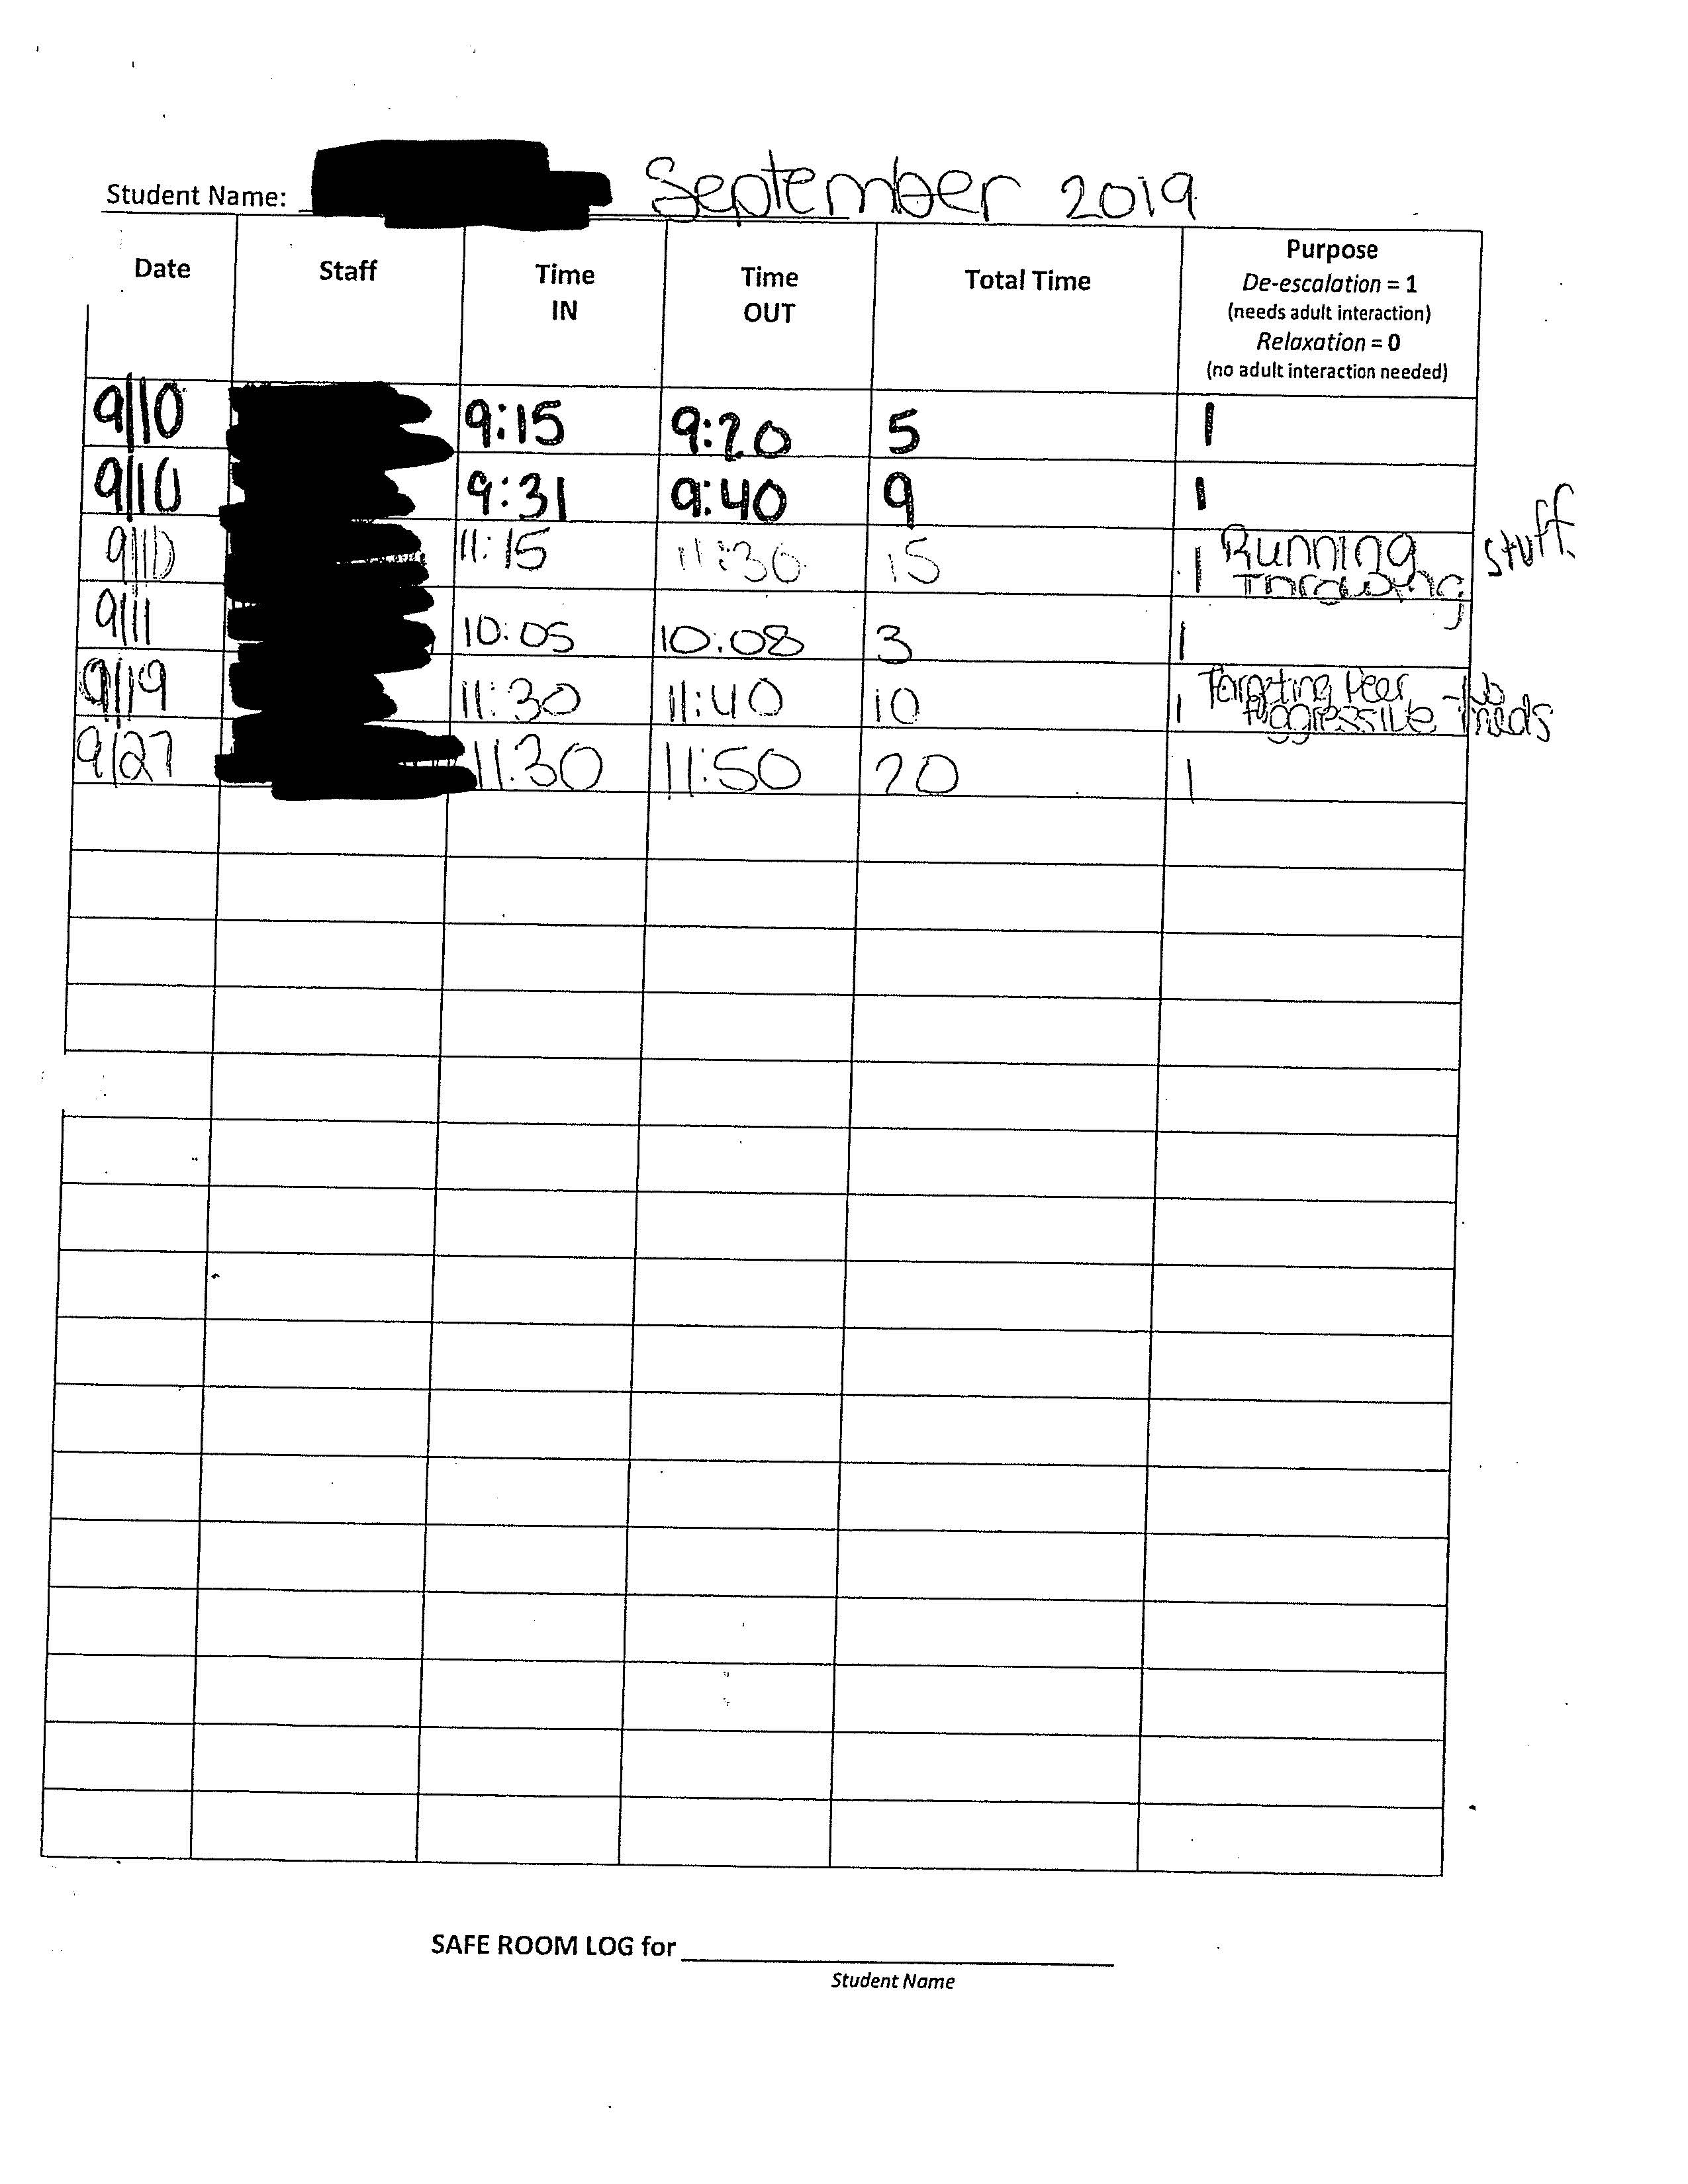 Student Name: September 2019
Date Staff Time IN Time OUT Total Time Purpose
De-escalation = 1
(needs adult interaction)
Relaxation = 0
(no adult interaction needed)
9/10 9:15 9:20 5 1
9/10 9:31 9:40 9 1
9/10 11:15 11:30 15 1 Running Throwing stuff
9/11 10:05 10:08 3 1
9/19 11:30 11:40 10 1 Targeting Peer Aggressive -No meds
9/27 11:30 11:50 20 1
SAFE ROOM LOG for
Student Name